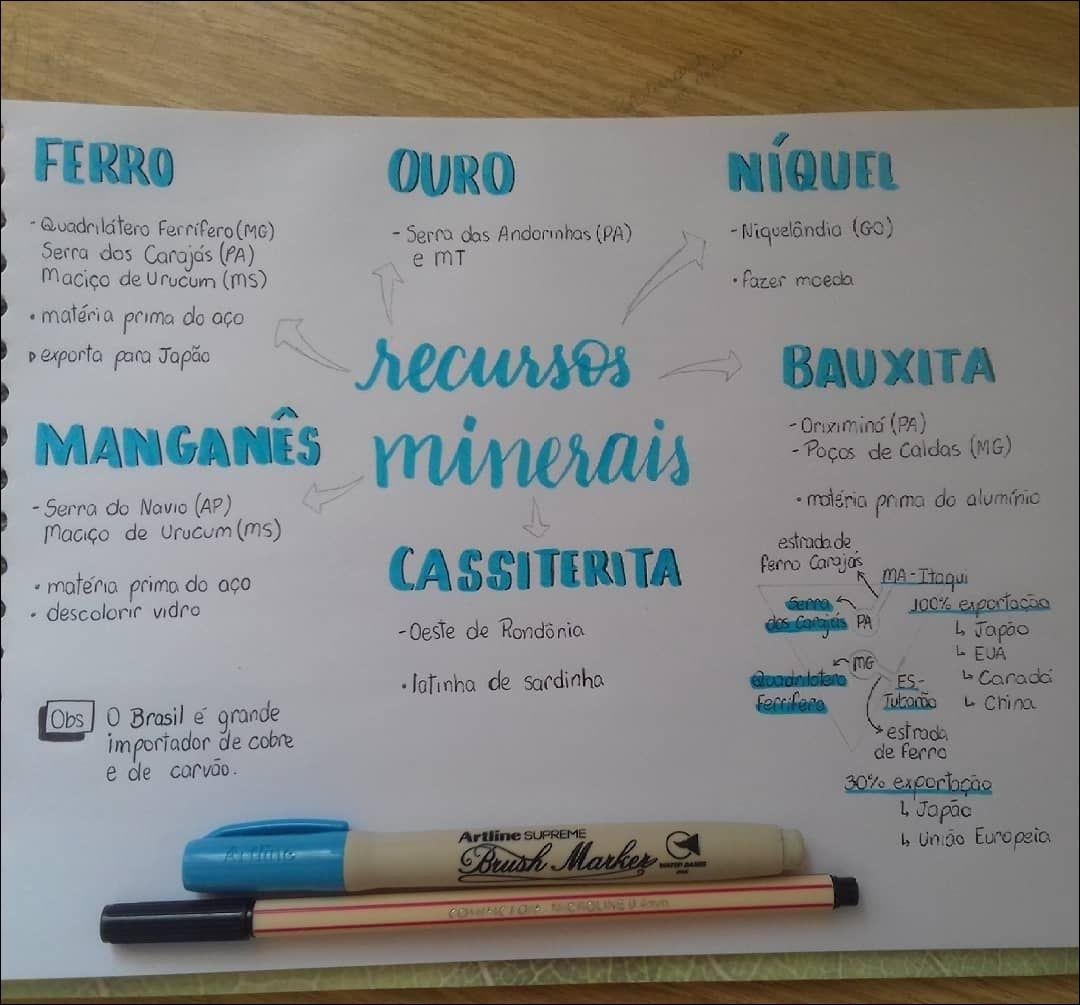 FERRO
- Quadrilátero Ferrífero (MG)
Serra dos Carajás (PA)
Maciço de Urucum (MS)
• matéria prima do aço
▷ exporta para Japão
OURO
- Serra das Andorinhas (PA)
e MT
NÍQUEL
- Niquelândia (GO)
• fazer moeda
recursos
minerais
BAUXITA
- Oriximiná (PA)
- Poços de Caldas (MG)
• matéria prima do alumínio
MANGANÊS
- Serra do Navio (AP)
Maciço de Urucum (MS)
• matéria prima do aço
• descolorir vidro
CASSITERITA
- Oeste de Rondônia
• latinha de sardinha
estrada de
ferro Carajás
MA - Itaqui
100% exportação
↳ Japão
↳ EUA
↳ Canadá
↳ China
Serra
dos Carajás
PA
MG
Quadrilátero
Ferrífero
ES -
Tubarão
estrada
de ferro
30% exportação
↳ Japão
↳ União Europeia
Obs
O Brasil é grande
importador de cobre
e de carvão.
Artline
Artline SUPREME
Brush Marker
WATER BASED
COMPACTOR MICROLINE 0.4mm